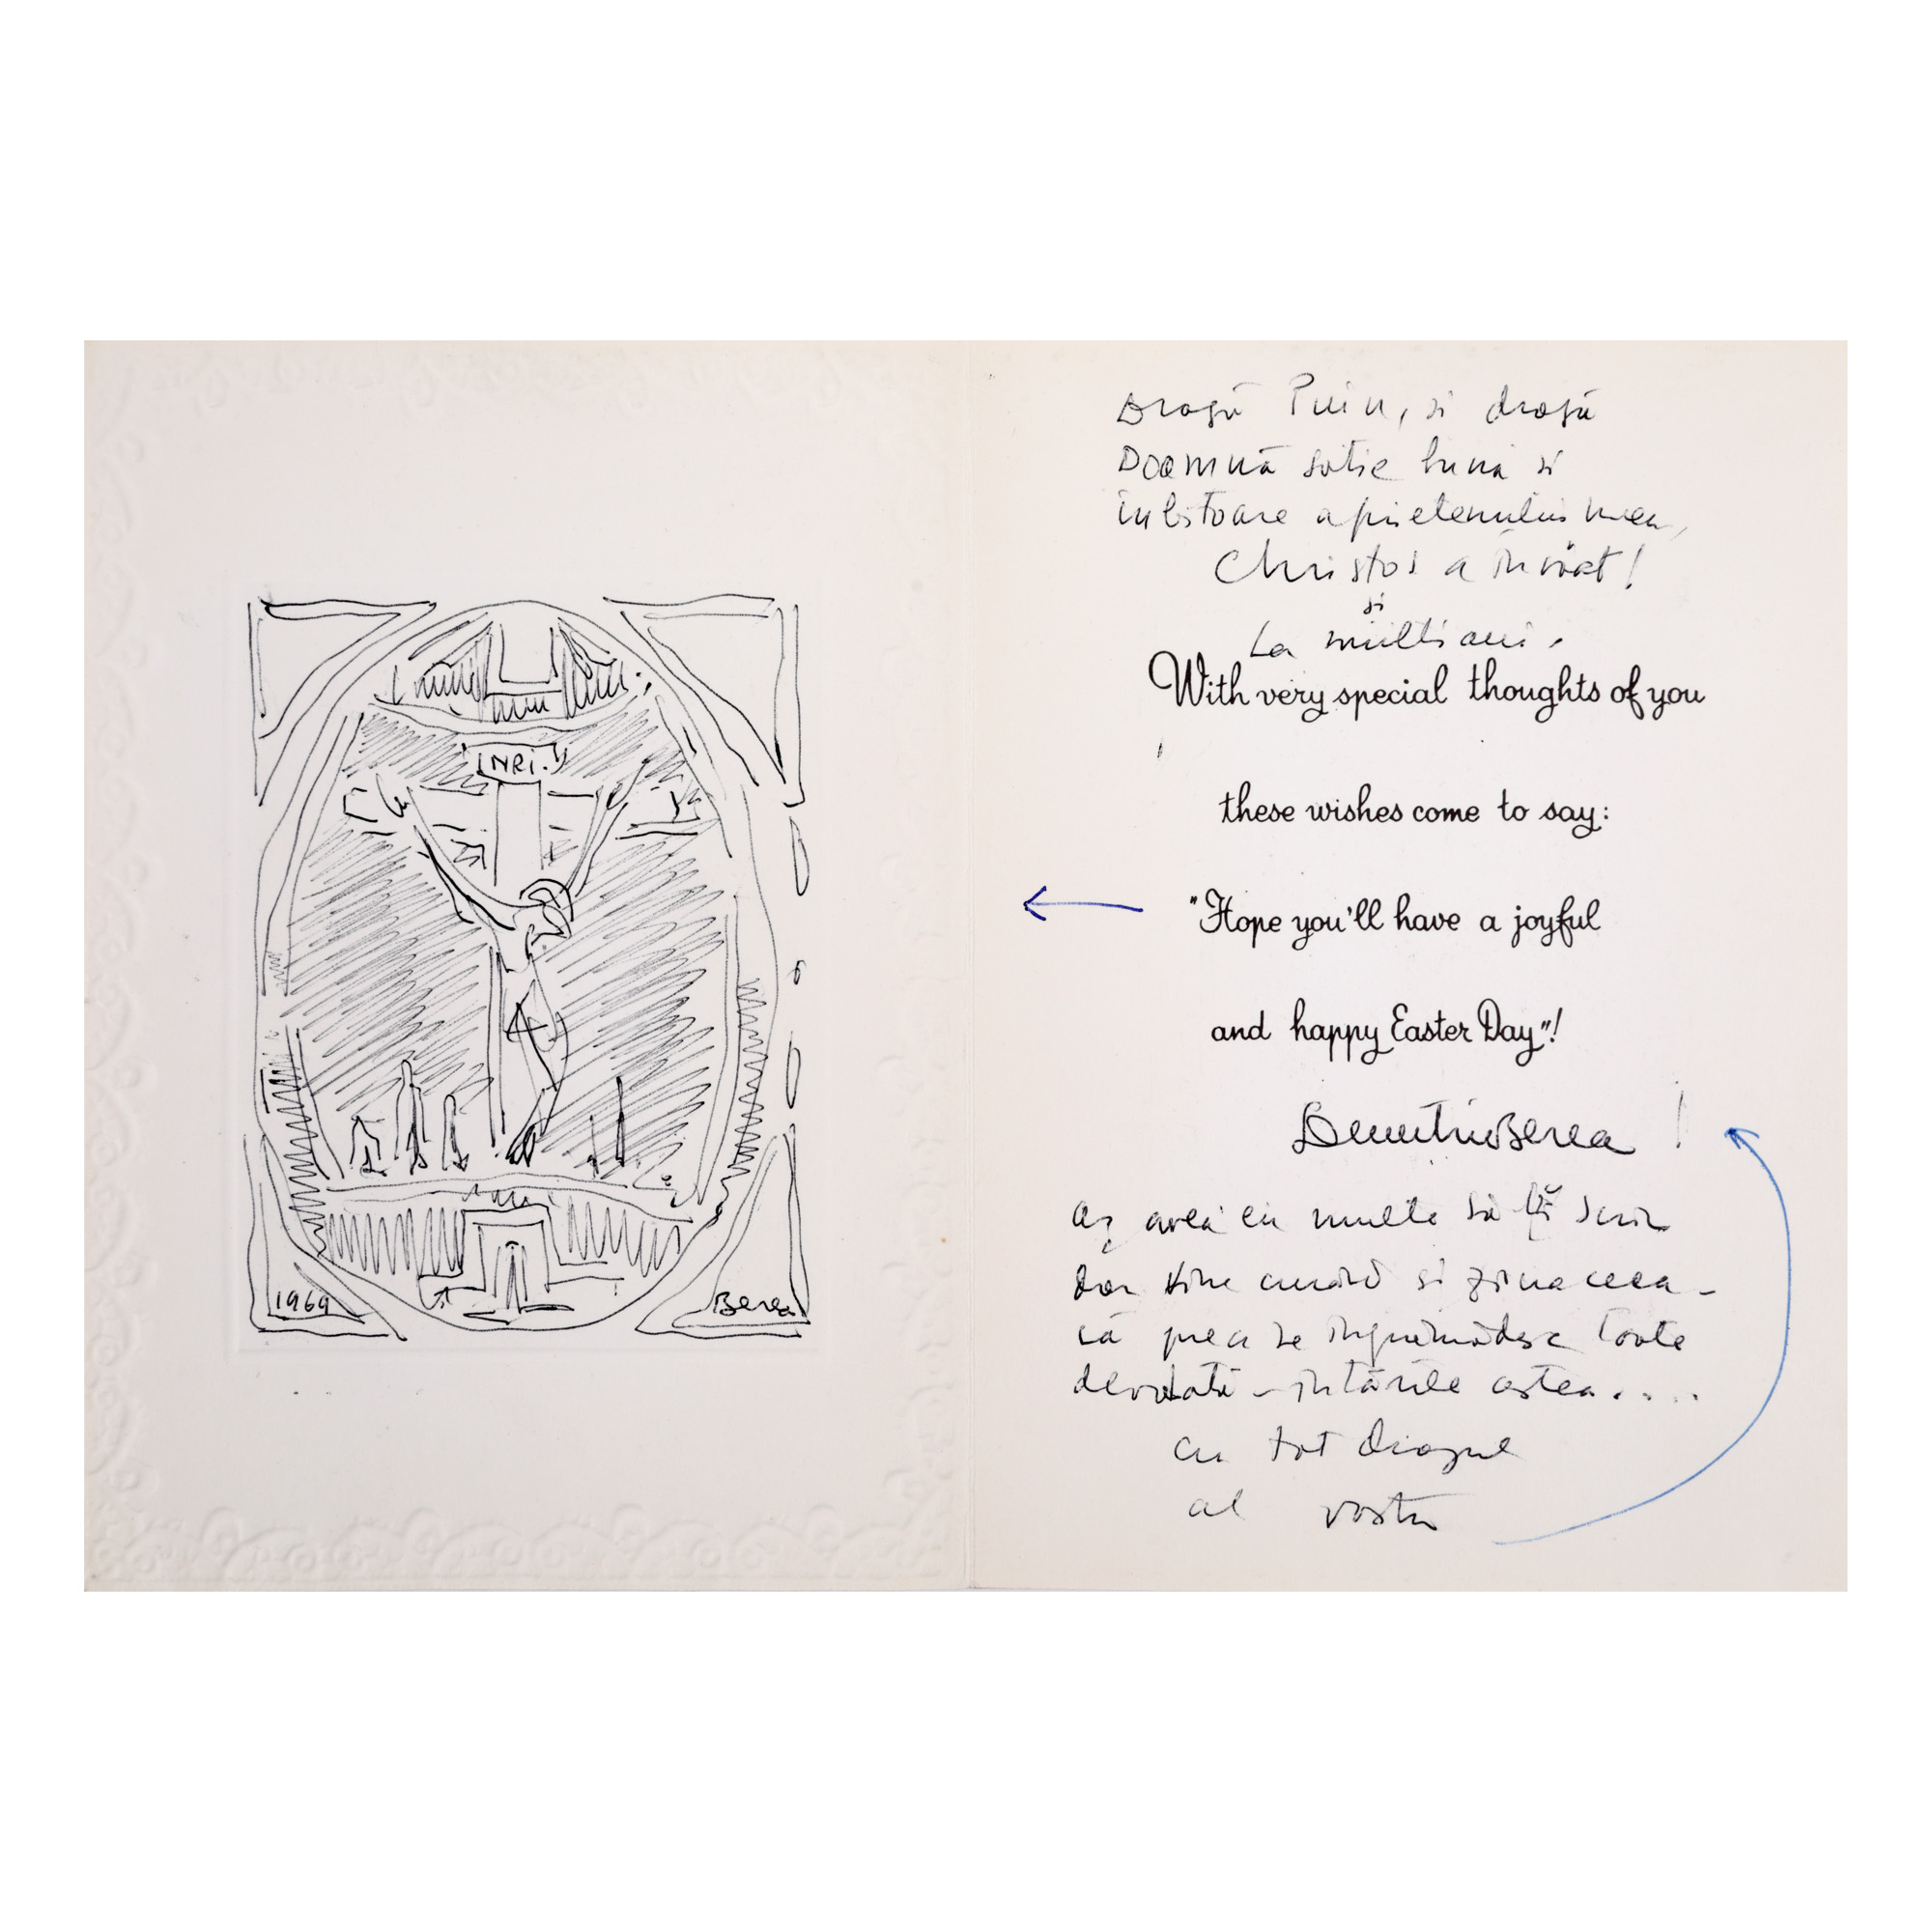 INRI.
1969
Berea
Dragă Puiu, si dragă
Doamnă sotie buna si
iubitoare a prietenului meu,
Christos a înviat!
si
La multi ani.
With very special thoughts of you
these wishes come to say:
"Hope you'll have a joyful
and happy Easter Day"!
Demetru Berea !
aş avea eu multe să scriu
dar vine curând si ziua aceea -
că prea se îngrămădesc toate
astea....
cu tot dragul
al vostru